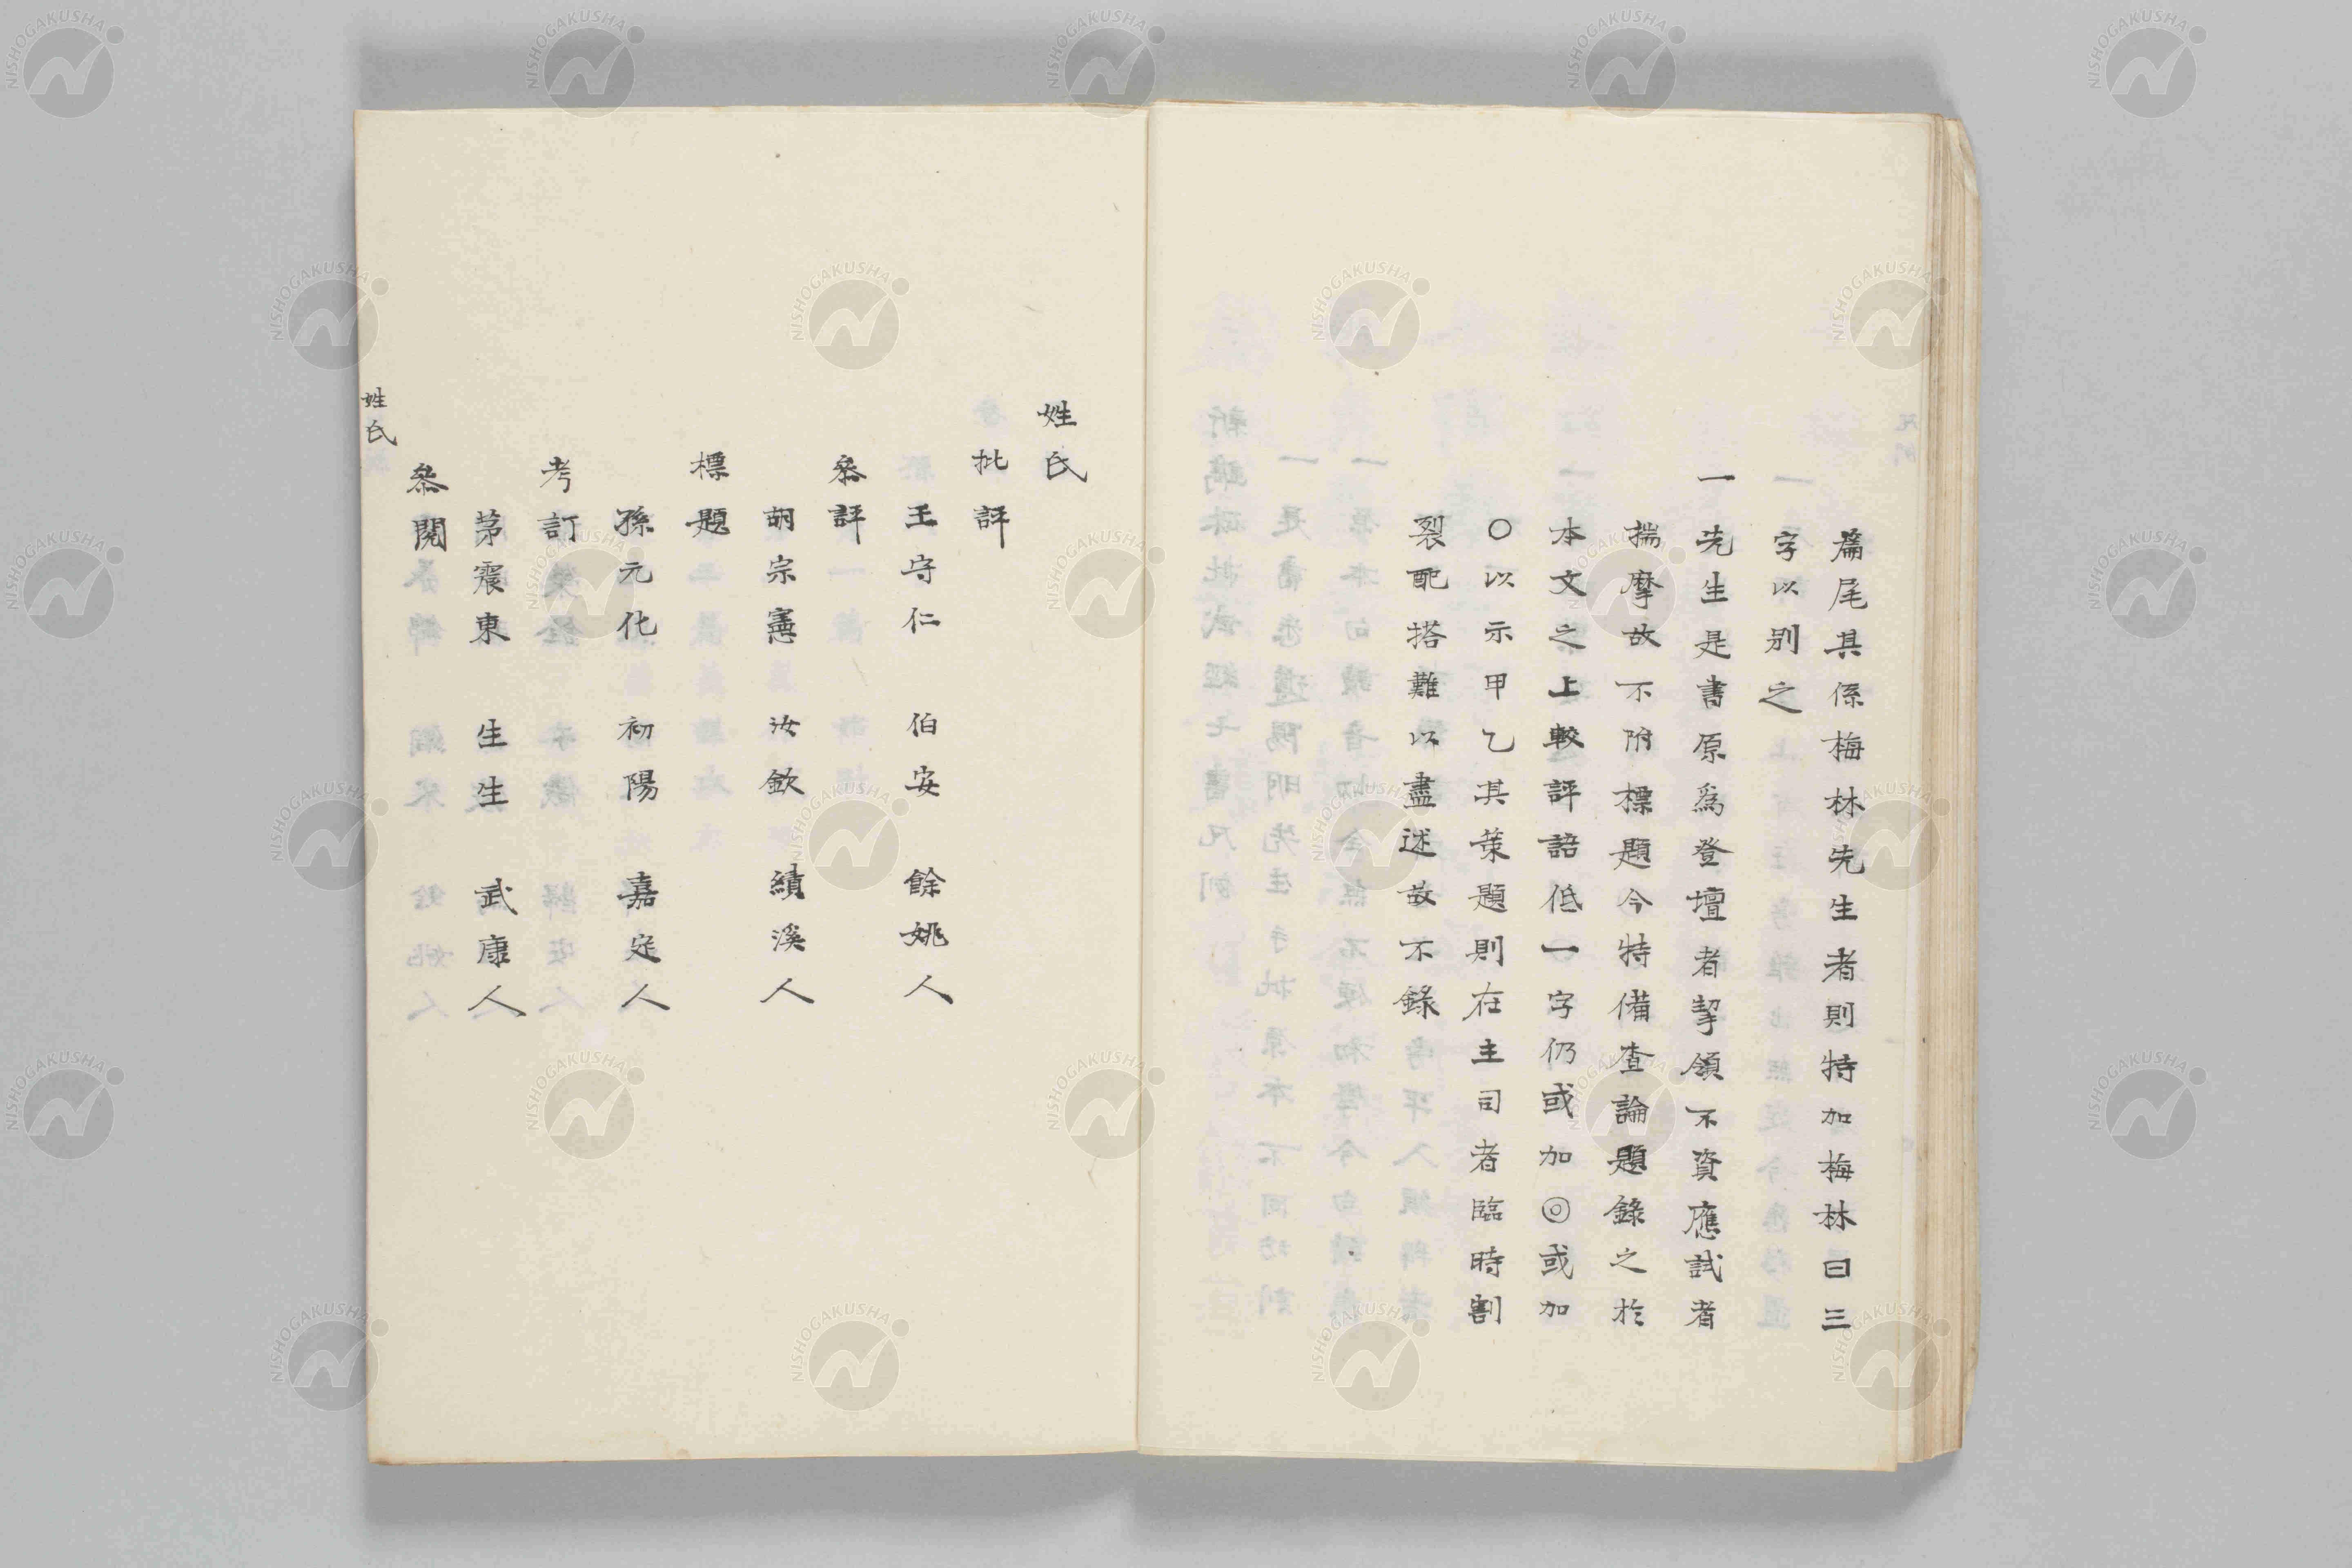 篇尾其係梅林先生者則特加梅林曰三
字以别之
一先生是書原爲登壇者挈領不資應試者
揣摩故不附標題今特備查論題錄之於
本文之上較評語低一字仍或加◎或加
○以示甲乙其策題則在主司者臨時割
裂配搭難以盡述故不錄
姓氏
批評
王守仁 伯安 餘姚人
叅評
胡宗憲 汝欽 績溪人
標題
孫元化 初陽 嘉定人
考訂
茅震東 生生 武康人
叅閱
姓氏
NISHOGAKUSHA